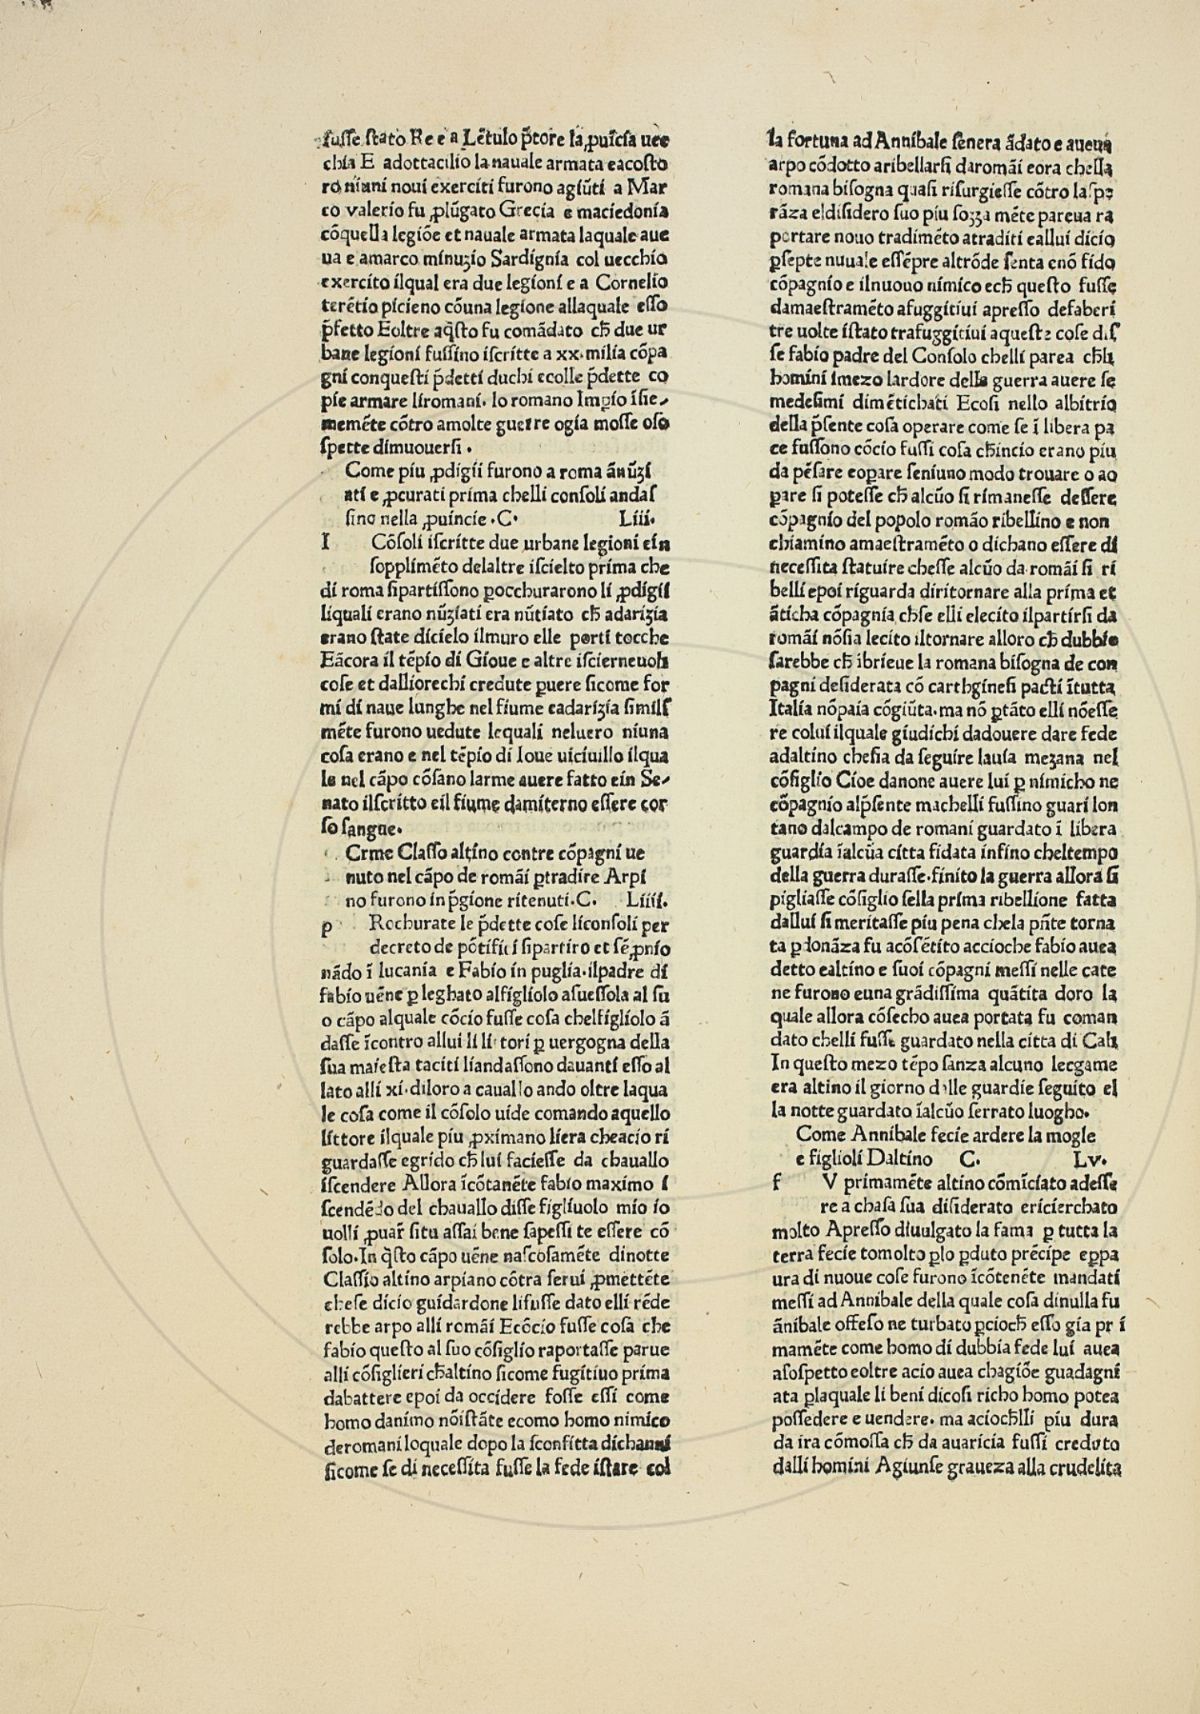 fusse stato Re e a Lētulo p̄tore la ꝓuīcia uec
chia E adottacilio la nauale armata eacosto
ro niuni noui exerciti furono agiūti a Mar
co valerio fu ꝓlūgato Grecia e maciedonia
cōquella legiōe et nauale armata laquale aue
ua e amarco minuzio Sardignia col uecchio
exercito ilqual era due legioni e a Cornelio
terētio picieno cōuna legione allaquale esso
p̄fetto Eoltre aq̄sto fu comādato ch̄ due ur
bane legioni fussino iscritte a xx. milia cōpa
gni conquesti p̄detti duchi ecolle p̄dette co
pie armare liromani. lo romano Imꝑio īsie-
memēte cōtro amolte guerre ogia mosse oso
spette dimuouersi .
Come piu ꝓdigii furono a roma ānūzi
ati e ꝓcurati prima chelli consoli andas
sino nella ꝓuincie .C. Liii.
I Cōsoli iscritte due urbane legioni ein
sopplimēto delaltre iscielto prima che
di roma sipartissono ꝑocchurarono li ꝓdigii
liquali erano nūziati era nūtiato ch̄ adarizia
erano state dicielo ilmuro elle porti tocche
Eācora il tēpio di Gioue e altre iscierneuoli
cose et dalliorechi credute ꝑuere sicome for
mi di naue lunghe nel fiume eadarizia simils
mēte furono uedute lequali neluero niuna
cosa erano e nel tēpio di Ioue uiciuillo ilqua
le nel cāpo cōsano larme auere fatto ein Se-
nato ilscritto eil fiume damiterno essere cor
so sangue.
Crme Classo altino contre cōpagni ue
nuto nel cāpo de romāi ꝑtradire Arpi
no furono in p̄gione ritenuti .C. Liiii.
p Rochurate le p̄dette cose liconsoli per
decreto de pōtifici sipartiro et sēꝓnio
nādo ī lucania e Fabio in puglia.ilpadre di
fabio uēne ꝑ leghato alfigliolo asuessola al su
o cāpo alquale cōcio fusse cosa chelfigliolo ā
dasse īcontro allui li li tori ꝑ uergogna della
sua maiesta taciti liandassono dauanti esso al
lato alli xi. diloro a cauallo ando oltre laqua
le cosa come il cōsolo uide comando aquello
littore ilquale piu ꝓximano liera cheacio ri
guardasse egrido ch̄ lui faciesse da chauallo
iscendere Allora īcōtanēte fabio maximo i
scendēdo del chauallo disse figliuolo mio io
uolli ꝓuar̄ situ assai bene sapessi te essere cō
solo.In q̄sto cāpo uēne nascosamēte dinotte
Classio altino arpiano cōtra serui ꝓmettēte
chese dicio guidardone lifusse dato elli rēde
rebbe arpo alli romāi Ecōcio fusse cosa che
fabio questo al suo cōsiglio raportasse parue
alli cōsiglieri ch̄altino sicome fugitiuo prima
dabattere epoi da occidere fosse essi come
homo danimo nōistāte ecomo homo nimico
deromani loquale dopo la sconfitta dichanni
sicome se di necessita fusse la fede istare col
la fortuna ad Annibale senera ādato e aueua
arpo cōdotto aribellarsi daromāi eora chella
romana bisogna quasi risurgiesse cōtro laspe
rāza eldisidero suo piu sozza mēte pareua ra
portare nouo tradimēto atraditi eallui dicio
ꝑsepte nuuale essēpre altrōde senta enō fido
cōpagnio e ilnuouo nimico ech̄ questo fusse
damaestramēto afuggitiui apresso defaberi
tre uolte istato trafuggitiui aqueste cose dis
se fabio padre del Consolo chelli parea ch̄li
homini imezo lardore della guerra auere se
medesimi dimētichati Ecosi nello albitrio
della p̄sente cosa operare come se ī libera pa
ce fussono cōcio fussi cosa ch̄incio erano piu
da pēsare eopare seniuno modo trouare o ao
ꝑare si potesse ch̄ alcūo si rimanesse dessere
cōpagnio del popolo romāo ribellino e non
chiamino amaestramēto o dichano essere di
necessita statuire chesse alcūo da romāi si ri
belli epoi riguarda diritornare alla prima et
āticha cōpagnia chse elli elecito ilpartirsi da
romāi nōsia lecito iltornare alloro ch̄ dubbio
sarebbe ch̄ ibrieue la romana bisogna de con
pagni desiderata cō carthginesi pacti ītutta
Italia nōpaia cōgiūta.ma nō ꝑtāto elli nōesse
re colui ilquale giudichi dadouere dare fede
adaltino chesia da seguire lauia mezana nel
cōsiglio Cioe danone auere lui ꝑ nimicho ne
cōpagnio alp̄sente machelli fussino guari lon
tano dalcampo de romani guardato ī libera
guardia īalcūa citta fidata infino cheltempo
della guerra durasse.finito la guerra allora si
pigliasse cōsiglio sella prima ribellione fatta
dallui si meritasse piu pena chela pn̄te torna
ta ꝑdonāza fu acōsētito accioche fabio auea
detto ealtino e suoi cōpagni messi nelle cate
ne furono euna grādissima quātita doro la
quale allora cōsecho auea portata fu coman
dato chelli fusse guardato nella citta di Cali
In questo mezo tēpo sanza alcuno leegame
era altino il giorno dalle guardie seguito el
la notte guardato īalcūo serrato luogho.
Come Annibale fecie ardere la mogle
e figlioli Daltino C. Lv.
f V primamēte altino cōmīciato adesse
re a chasa sua disiderato ericierchato
molto Apresso diuulgato la fama ꝑ tutta la
terra fecie tomolto ꝑlo ꝑduto prēcipe eppa
ura di nuoue cose furono īcōtenēte mandati
messi ad Annibale della quale cosa dinulla fu
ānibale offeso ne turbato ꝑcioch̄ esso gia pr i
mamēte come homo di dubbia fede lui auea
asospetto eoltre acio auea chagiōe guadagni
ata ꝑlaquale li beni dicosi richo homo potea
possedere e uendere. ma acioch̄lli piu dura
da ira cōmossa ch̄ da auaricia fussi creduto
dalli homini Agiunse graueza alla crudelita